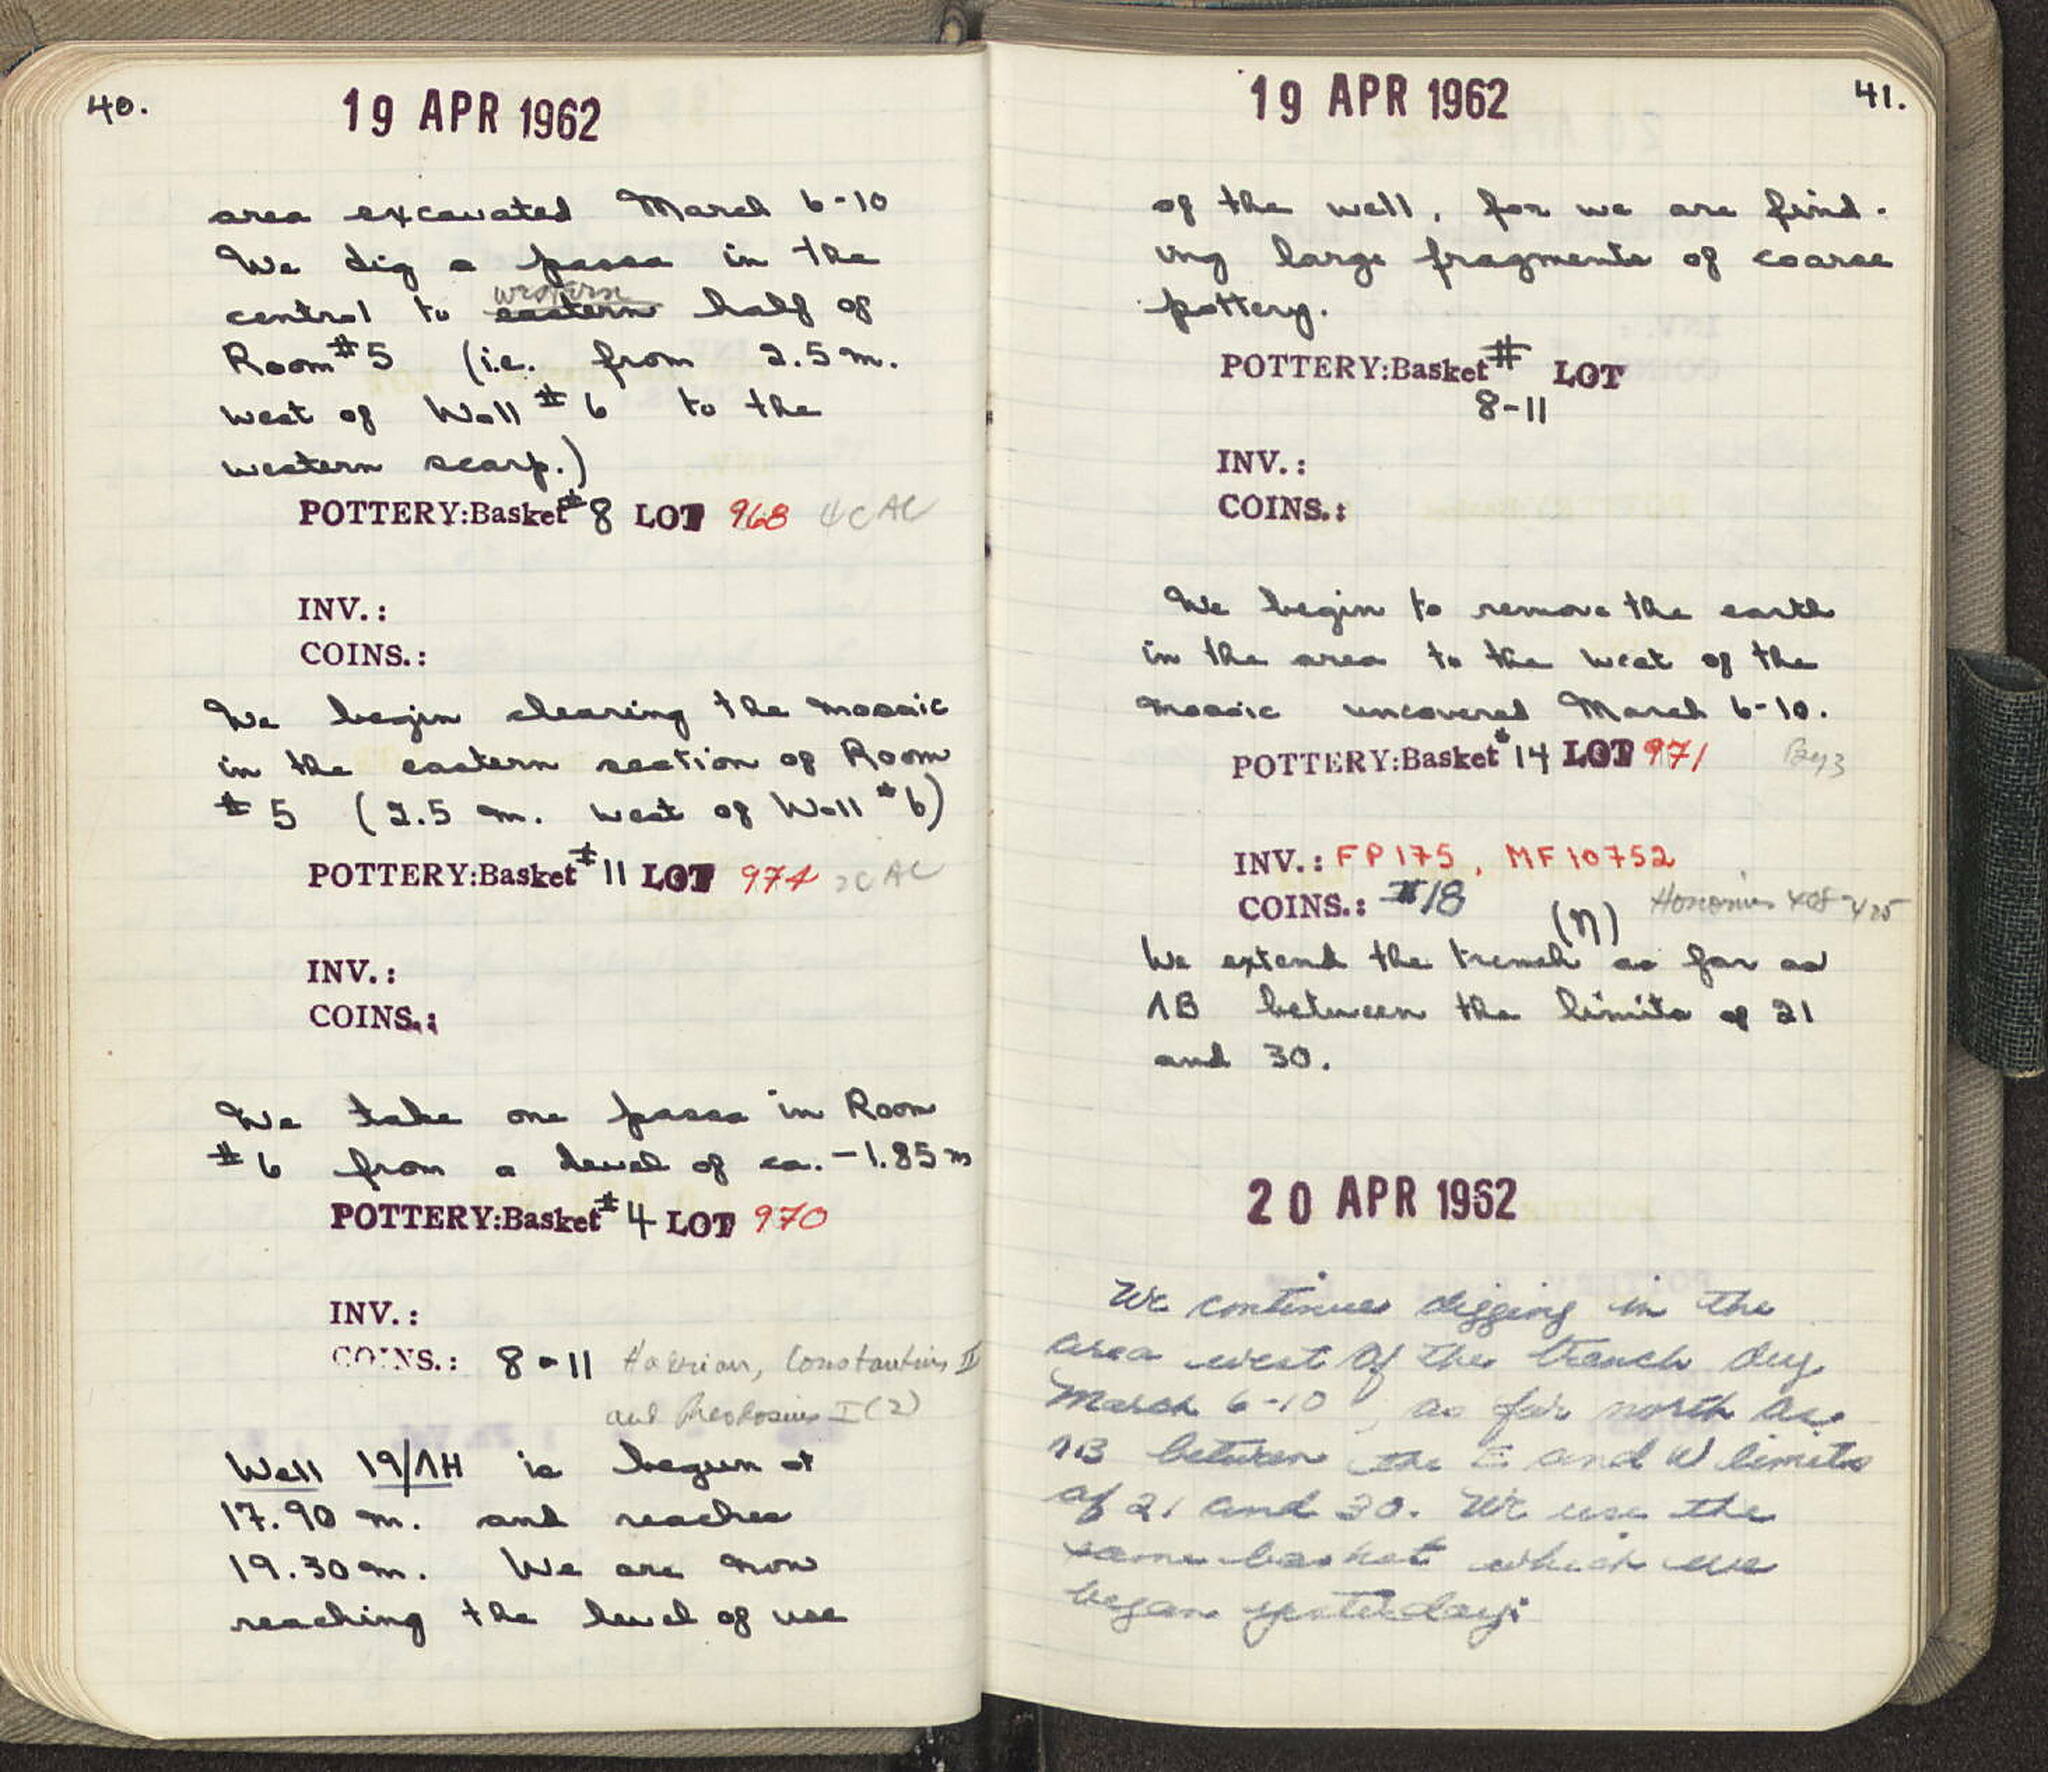 40.
19 APR 1962
area excavated March 6-10
We dig a passa in the
western
central to eastern half of
Room #5 (i.e. from 2.5 m.
west of Wall #6 to the
western scarp.)
POTTERY:Basket #8 LOT 968 4C AC
INV.:
COINS.:
We begin clearing the mosaic
in the eastern section of Room
#5 (2.5 m. west of Wall #6)
POTTERY:Basket #11 LOT 974 2C AC
INV.:
COINS.:
We take one passa in Room
#6 from a level of ca. -1.85 m
POTTERY:Basket #4 LOT 970
INV.:
COINS.: 8-11 Hadrian, Constantius II
and Theodosius I (2)
Well 19/ΛH is begun at
17.90 m. and reaches
19.30 m. We are now
reaching the level of use
19 APR 1962
41.
of the well, for we are find-
ing large fragments of coarse
pottery.
POTTERY:Basket # LOT
8-11
INV.:
COINS.:
We begin to remove the earth
in the area to the west of the
mosaic uncovered March 6-10.
POTTERY:Basket #14 LOT 971 Byz
INV.: FP175, MF10752
COINS.: #18 Honorius 408-425
(N)
We extend the trench as far as
ΛB between the limits of 21
and 30.
20 APR 1962
We continue digging in the
area west of the trench dug
March 6-10, as far north as
ΛB between the E and W limits
of 21 and 30. We use the
same basket which we
began yesterday: